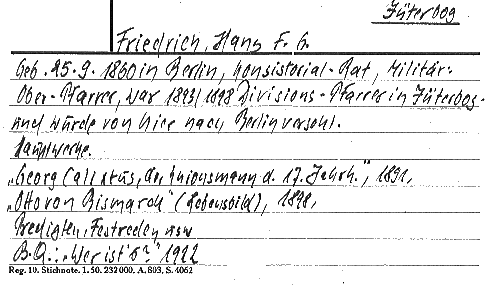 Jüterbog
Friedrich, Hans F. G.
Geb. 25.9.1860 in Berlin, Konsistorial-Rat, Militär-
Ober-Pfarrer, war 1893/1898 Divisions-Pfarrer in Jüterbog
und wurde von hier nach Berlin versetzt.
Hauptwerke.
„Georg Calixtus, der Unionsmann d. 17. Jahrh.", 1891,
„Otto von Bismarck" (Lebensbild), 1898,
Predigten, Festreden usw
B.Q.: „Wer ist's?" 1922
Reg. 10. Stichnote. 1. 50. 232000. A. 803. S. 4062